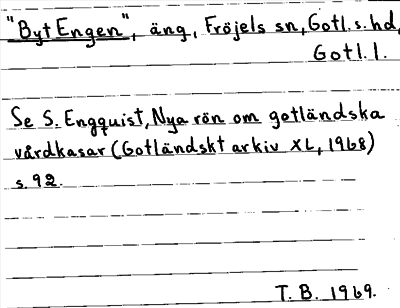 "Byt Engen", äng, Fröjels sn, Gotl. s. hd,
Gotl. l.
Se S. Engquist, Nya rön om gotländska
vårdkasar (Gotländskt arkiv XL, 1968)
s. 92.
T. B. 1969.